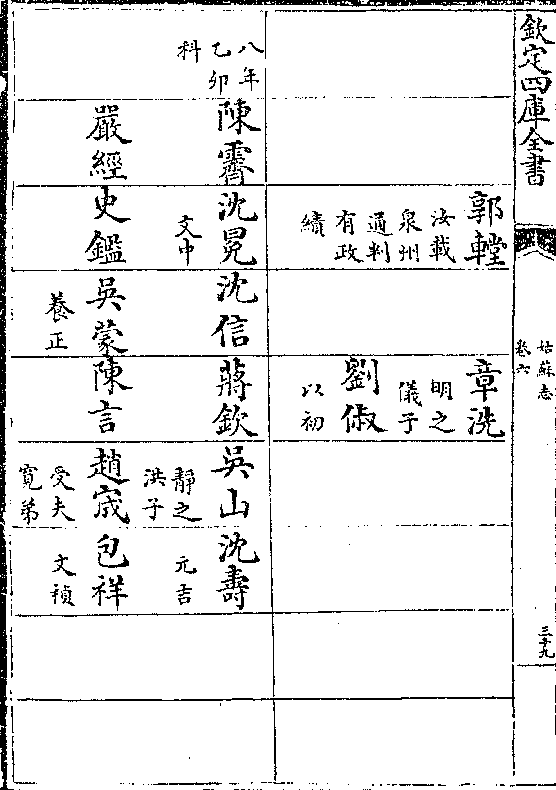 欽定四庫全書
姑蘇志
卷六
三十九
郭
汝載
泉州
通判
有政
績
章洗
明之
儀子
劉俶
以初
八年
乙卯
科
陳霽
沈冕
文中
沈信
蔣欽
吳山
靜之
洪子
沈壽
元吉
嚴經
史鑑
吳蒙
養正
陳言
趙宬
受夫
寛弟
包祥
文禎